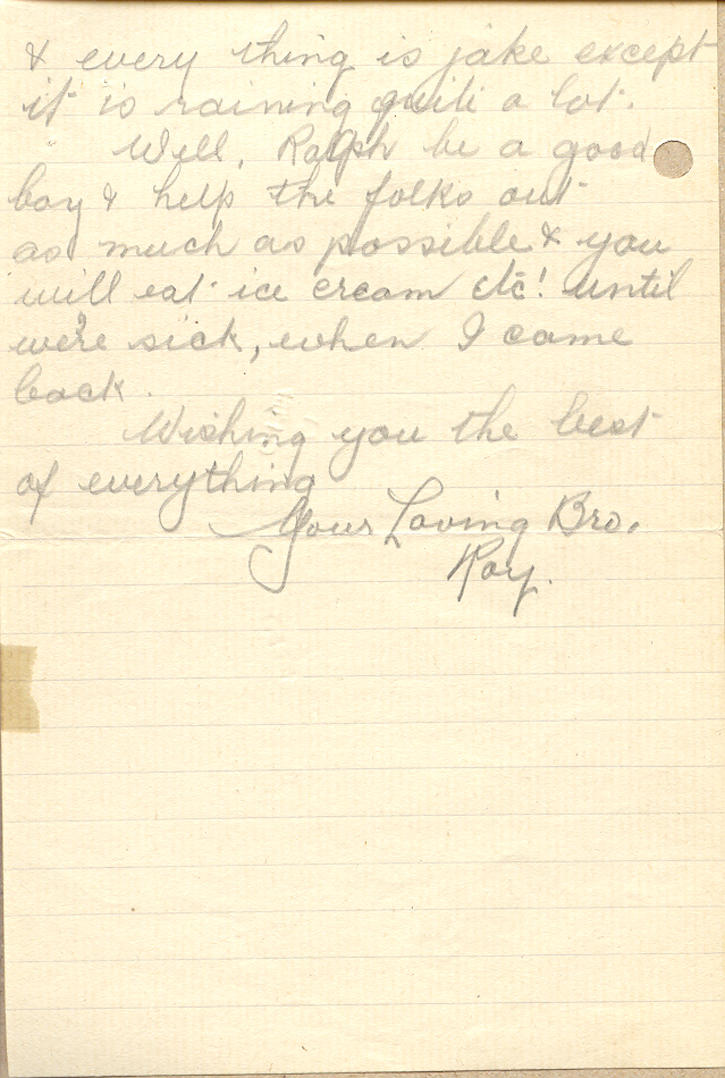 & every thing is jake except
it is raining quite a lot.
Well, Ralph be a good
boy & help the folks out
as much as possible & you
will eat ice cream etc! until
we're sick, when I come
back.
Wishing you the best
of everything
Your Loving Bro.
Roy.